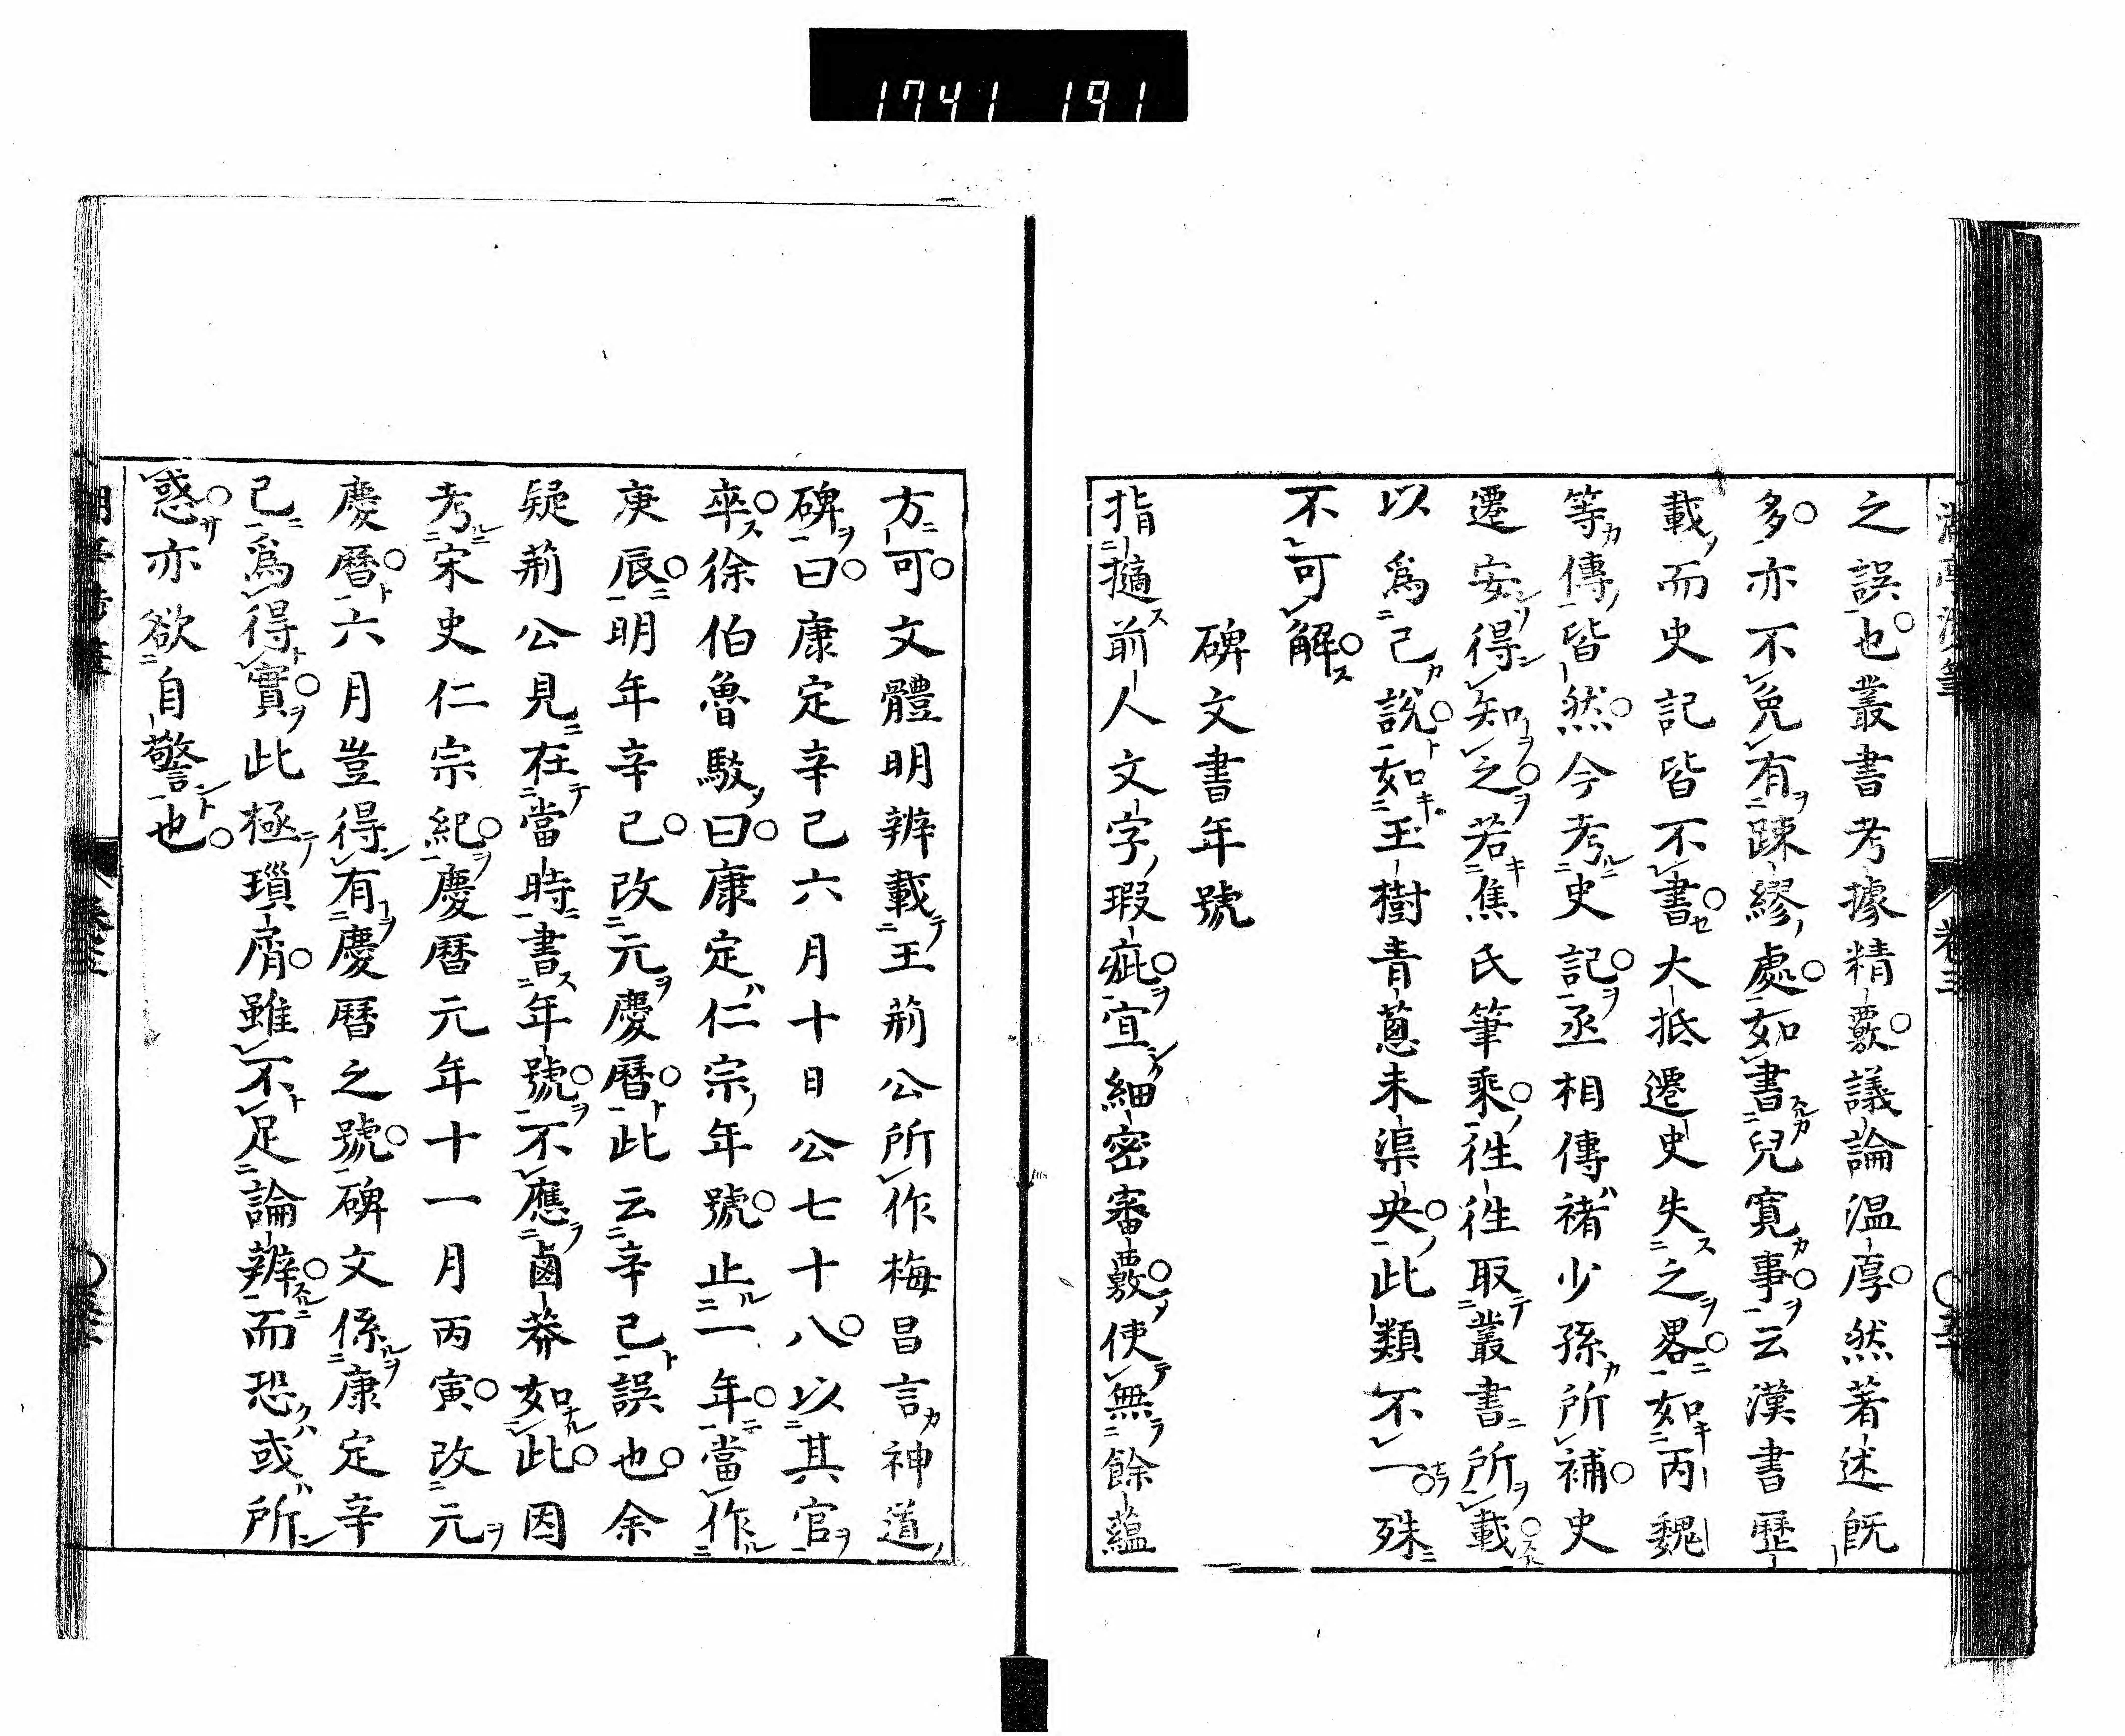 1741 191
之誤也叢書考據精覈議論温厚然著述既
多亦不免有踈繆處如書兒寛事云漢書歷
載而史記皆不書大抵遷史失之畧如丙魏
等傳皆然今考史記丞相傳褚少孫所補史
遷安得知之若焦氏筆乘徃徃取叢書所載
以爲己說如玉樹青蔥未渠央此類不一殊
不可解
碑文書年號
指擿前人文字瑕疵宜細密審覈使無餘蘊
方可文體明辨載王荊公所作梅昌言神道
碑曰康定辛己六月十日公七十八以其官
卒徐伯魯駁曰康定仁宗年號止一年當作
庚辰明年辛己改元慶曆此云辛己誤也余
疑荊公見在當時書年號不應鹵莽如此因
考宋史仁宗紀慶曆元年十一月丙寅改元
慶曆六月豈得有慶曆之號碑文係康定辛
己爲得實此極瑣屑雖不足論辨而恐或所
惑亦欲自警也